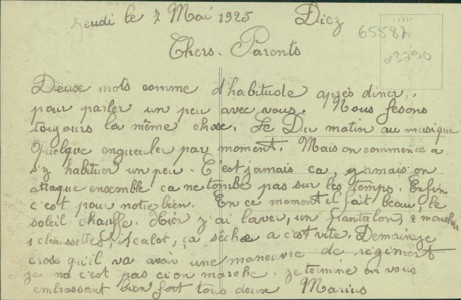 Jeudi le 7 Mai 1925 Diez
65587
23790
Chers Parents
Deuse mots comme d'habitude après diner,
pour parler un peu avec vous. Nous fesons
toujours la même chose. Le Du matin au musique
quelque engueuler par moment. Mais on commence a
s'y habituer un peu. C'est jamais ca, jamais on
attaque ensemble ca ne tombe pas sur les temps. Enfin
c'est pour notre bien. En ce moment il fait beau le
soleil chauffe. Hier j'ai laver, un pantalon, 2 mouchoirs
1 chaussettes, 1 calot, ca sèche a c'est vite. Demain je
crois qu'il va avoir une maneuvre de régiment
je ne c'est pas ci on marche. je termine en vous
embrassant bien fort tous deux Marius